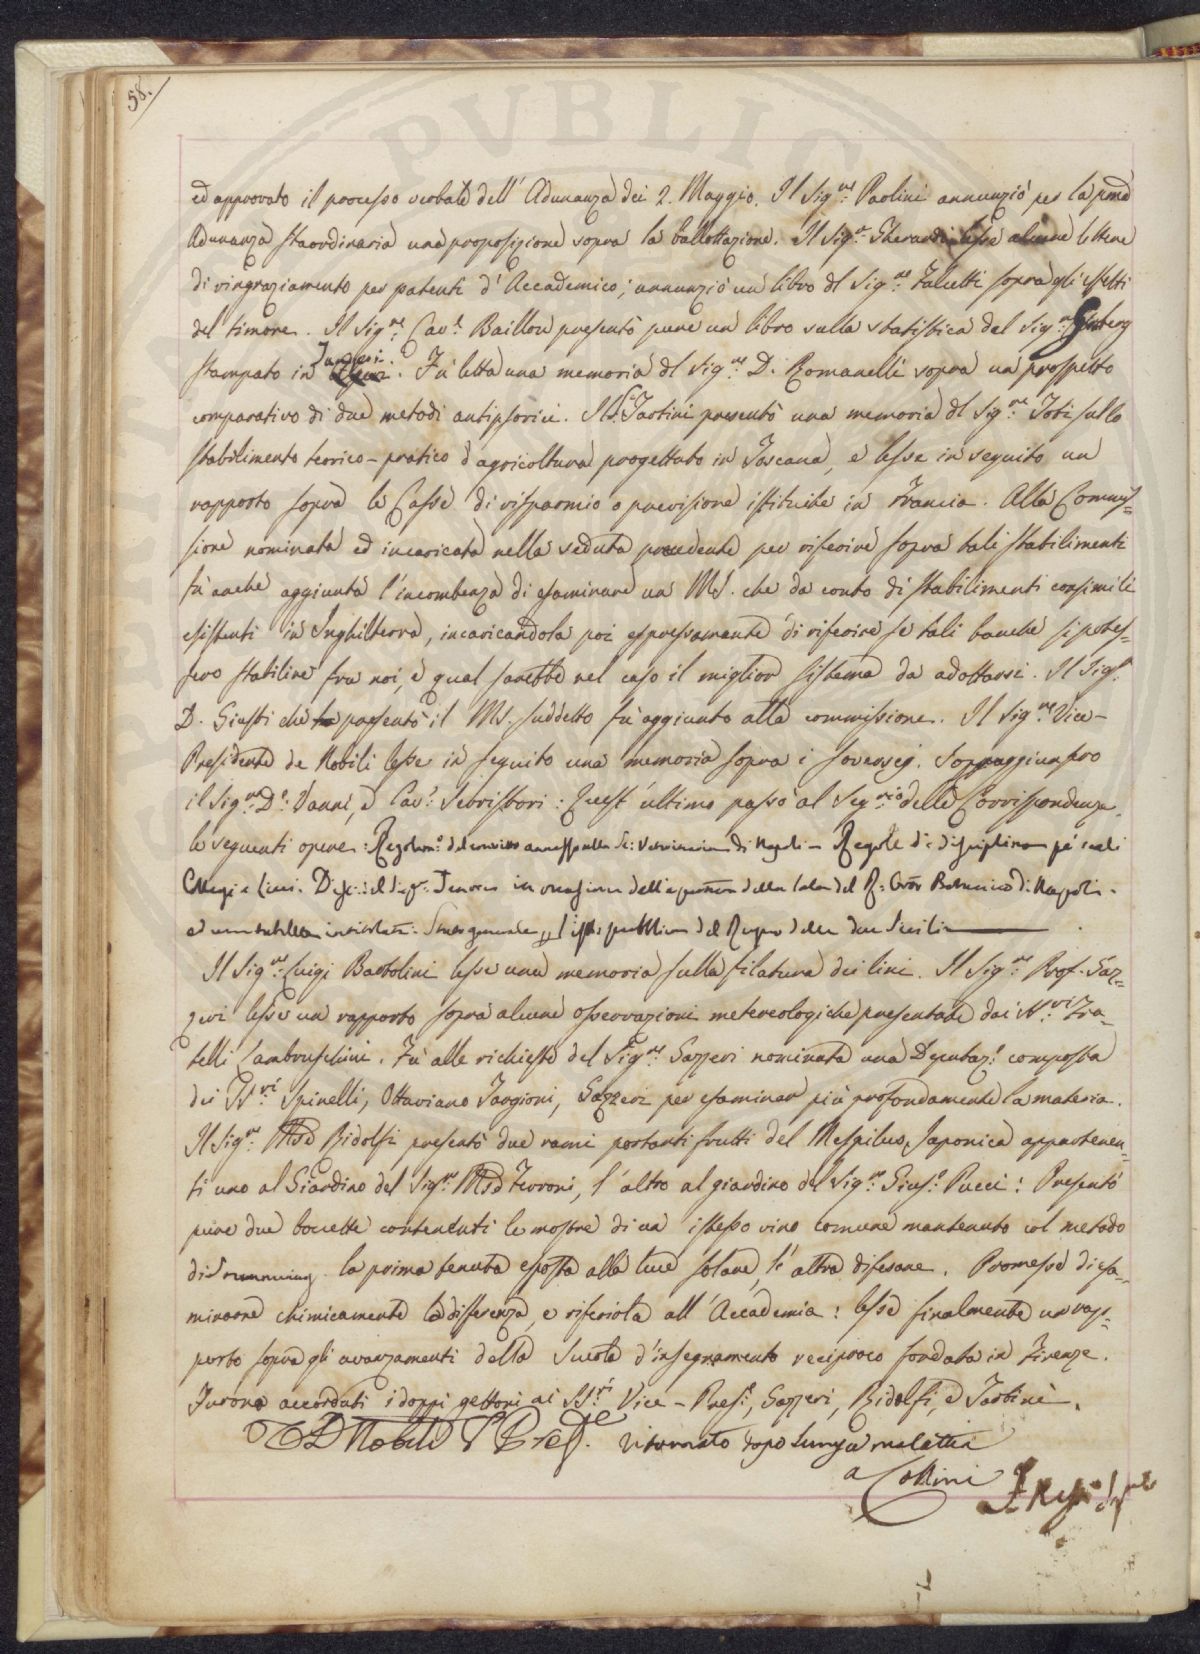 58.
PVBLIC
ed approvato il processo verbale dell' Adunanza dei 2. Maggio. Il Sig.re Paolini annunziò per la pma
Adunanza staordinaria una proposizione sopra la ballottazione. Il Sig.r Gherardi lesse alcune lettere
di ringraziamento per patenti d' Accademico; annunziò un libro del Sig.re Falietti sopra gli effetti
del timore. Il Sig.re Cav.e Baillou presentò pure un libro sulla statistica del Sig.re Graberg
stampato in Tangeri. Fu letta una memoria del Sig.re D. Romanelli sopra un prospetto
comparativo di due metodi antipsorici. Il S. Tartini presentò una memoria del Sig.re sullo
stabilimento teorico-pratico d'agricoltura progettato in Toscana, e lesse in seguito un
rapporto sopra le Casse di risparmio o previsione istituite in Francia. Alla Commis=
sione nominata ed incaricata nella seduta precedente per riferire sopra tali stabilimenti
fù anche aggiunta l'incombenza di esaminare un MS. che da conto di stabilimenti consimili
esistenti in Inghilterra, incaricandola poi espressamente di riferire se tali banche si potes=
sero stabilire fra noi, e qual sarebbe nel caso il miglior sistema da adottarsi. Il Sig.r
D. Giusti che presentò il MS. suddetto fù aggiunto alla commissione. Il Sig.re Vice-
Presidente de Nobili lesse in seguito una memoria sopra i soversci. Soppraggiunsero
il Sig.re D.e Vanni, e Cav.e Sebristori: Quest' ultimo passò al Seg.rio delle Corrispondenze
le seguenti opere: Regolam.o del convitto annesso alla Sc: Veterinaria di Napoli - Regole di disciplina pe' reali
Collegi e Licei. Disc: del Sig.r Tenore in occasione dell'apertura della Sala del R: Orto Botanico di Napoli -
ed una tabella intitolata: Stato generale dell' istr: pubblica del Regno delle due Sicilie
Il Sig.re Luigi Bartolini lesse una memoria sulla filatura dei lini. Il Sig.re Prof. Gaz=
zeri lesse un rapporto sopra alcune osservazioni metereologiche presentate dai SS.ri Fra=
telli Lambruschini. Fù alle richieste del Sig.re Gazzeri nominata una Deputaz.e composta
dei SS.ri Spinelli, Ottaviano Targioni, Gazzeri per esaminar più profondamente la materia.
Il Sig.re Mse Ridolfi presentò due rami portanti frutti del Mespilus Japonica appartenen=
ti uno al Giardino del Sig.re Mse Ferroni, l' altro al giardino del Sig.re Gius.e Pucci: Presentò
pure due boccette contenenti le mostre di un istesso vino comune mantenuto col metodo
di la prima tenuta esposta alla luce solare, l' altra difesane. Promesse di esa=
minarne chimicamente la differenza, e riferirla all' Accademia: lesse finalmente un rap=
porto sopra gli avanzamenti della Scuola d'insegnamento reciproco fondata in Firenze.
Furono accordati i doppi gettoni ai SS.ri Vice-Pres.e, Gazzeri, Ridolfi, e Tartini.
De Nobili V. Presd.e ritornato dopo lunga malattia
a Collini